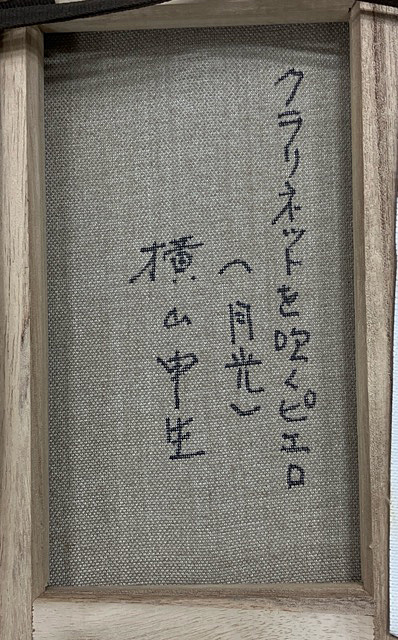 クラリネットを吹くピエロ
（月光）
横山申生